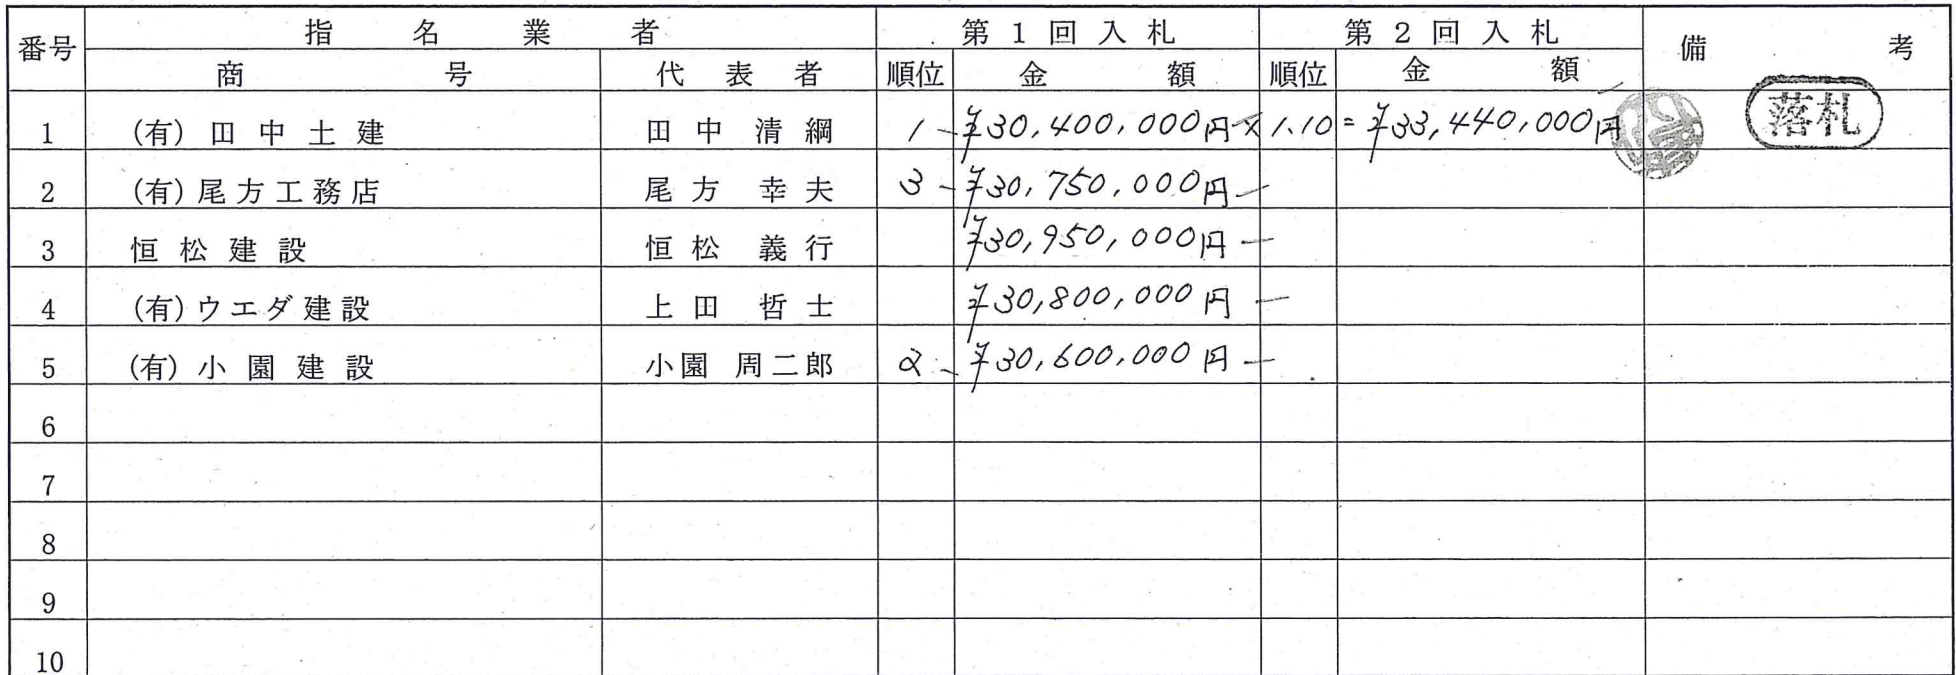 番号 指名業者 第1回入札 第2回入札 備考
商号 代表者 順位 金額 順位 金額
1 (有)田中土建 田中清綱 1 ¥30,400,000円 × 1.10 = ¥33,440,000円 落札
2 (有)尾方工務店 尾方幸夫 3 ¥30,750,000円
3 恒松建設 恒松義行 ¥30,950,000円
4 (有)ウエダ建設 上田哲士 ¥30,800,000円
5 (有)小園建設 小園周二郎 2 ¥30,600,000円
6
7
8
9
10